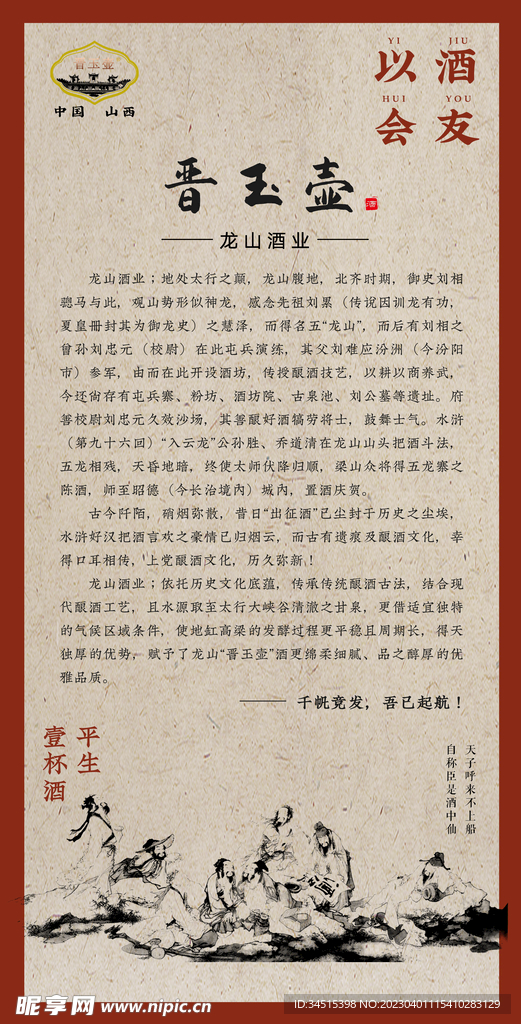 晋玉壶
中国 山西
YI JIU
以 酒
HUI YOU
会 友
晋玉壶
酒
龙山酒业
龙山酒业；地处太行之颠，龙山腹地，北齐时期，御史刘相
骢马与此，观山势形似神龙，感念先祖刘累（传说因训龙有功，
夏皇册封其为御龙史）之慧泽，而得名五“龙山”，而后有刘相之
曾孙刘忠元（校尉）在此屯兵演练，其父刘难应汾洲（今汾阳
市）参军，由而在此开设酒坊，传授酿酒技艺，以耕以商养武，
今还尚存有屯兵寨、粉坊、酒坊院、古泉池、刘公墓等遗址。府
善校尉刘忠元久效沙场，其善酿好酒犒劳将士，鼓舞士气。水浒
（第九十六回）“入云龙”公孙胜、乔道清在龙山山头把酒斗法，
五龙相残，天昏地暗，终使太师伏降归顺，梁山众将得五龙寨之
陈酒，师至昭德（今长治境内）城内，置酒庆贺。
古今阡陌，硝烟弥散，昔日“出征酒”已尘封于历史之尘埃，
水浒好汉把酒言欢之豪情已归烟云，而古有遗痕及酿酒文化，幸
得口耳相传，上党酿酒文化，历久弥新！
龙山酒业；依托历史文化底蕴，传承传统酿酒古法，结合现
代酿酒工艺，且水源取至太行大峡谷清澈之甘泉，更借适宜独特
的气侯区域条件，使地缸高粱的发酵过程更平稳且周期长，得天
独厚的优势，赋予了龙山“晋玉壶”酒更绵柔细腻、品之醇厚的优
雅品质。
—— 千帆竞发，吾已起航！
平生
壹杯酒
天子呼来不上船
自称臣是酒中仙
酒
昵享网 www.nipic.cn
ID:34515398 NO:20230401115410283129